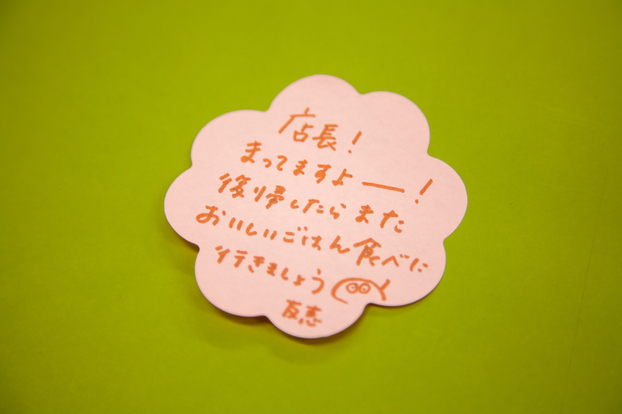 店長!
まってますよー!
復帰したらまた
おいしいごはん食べに
行きましょう
友恵